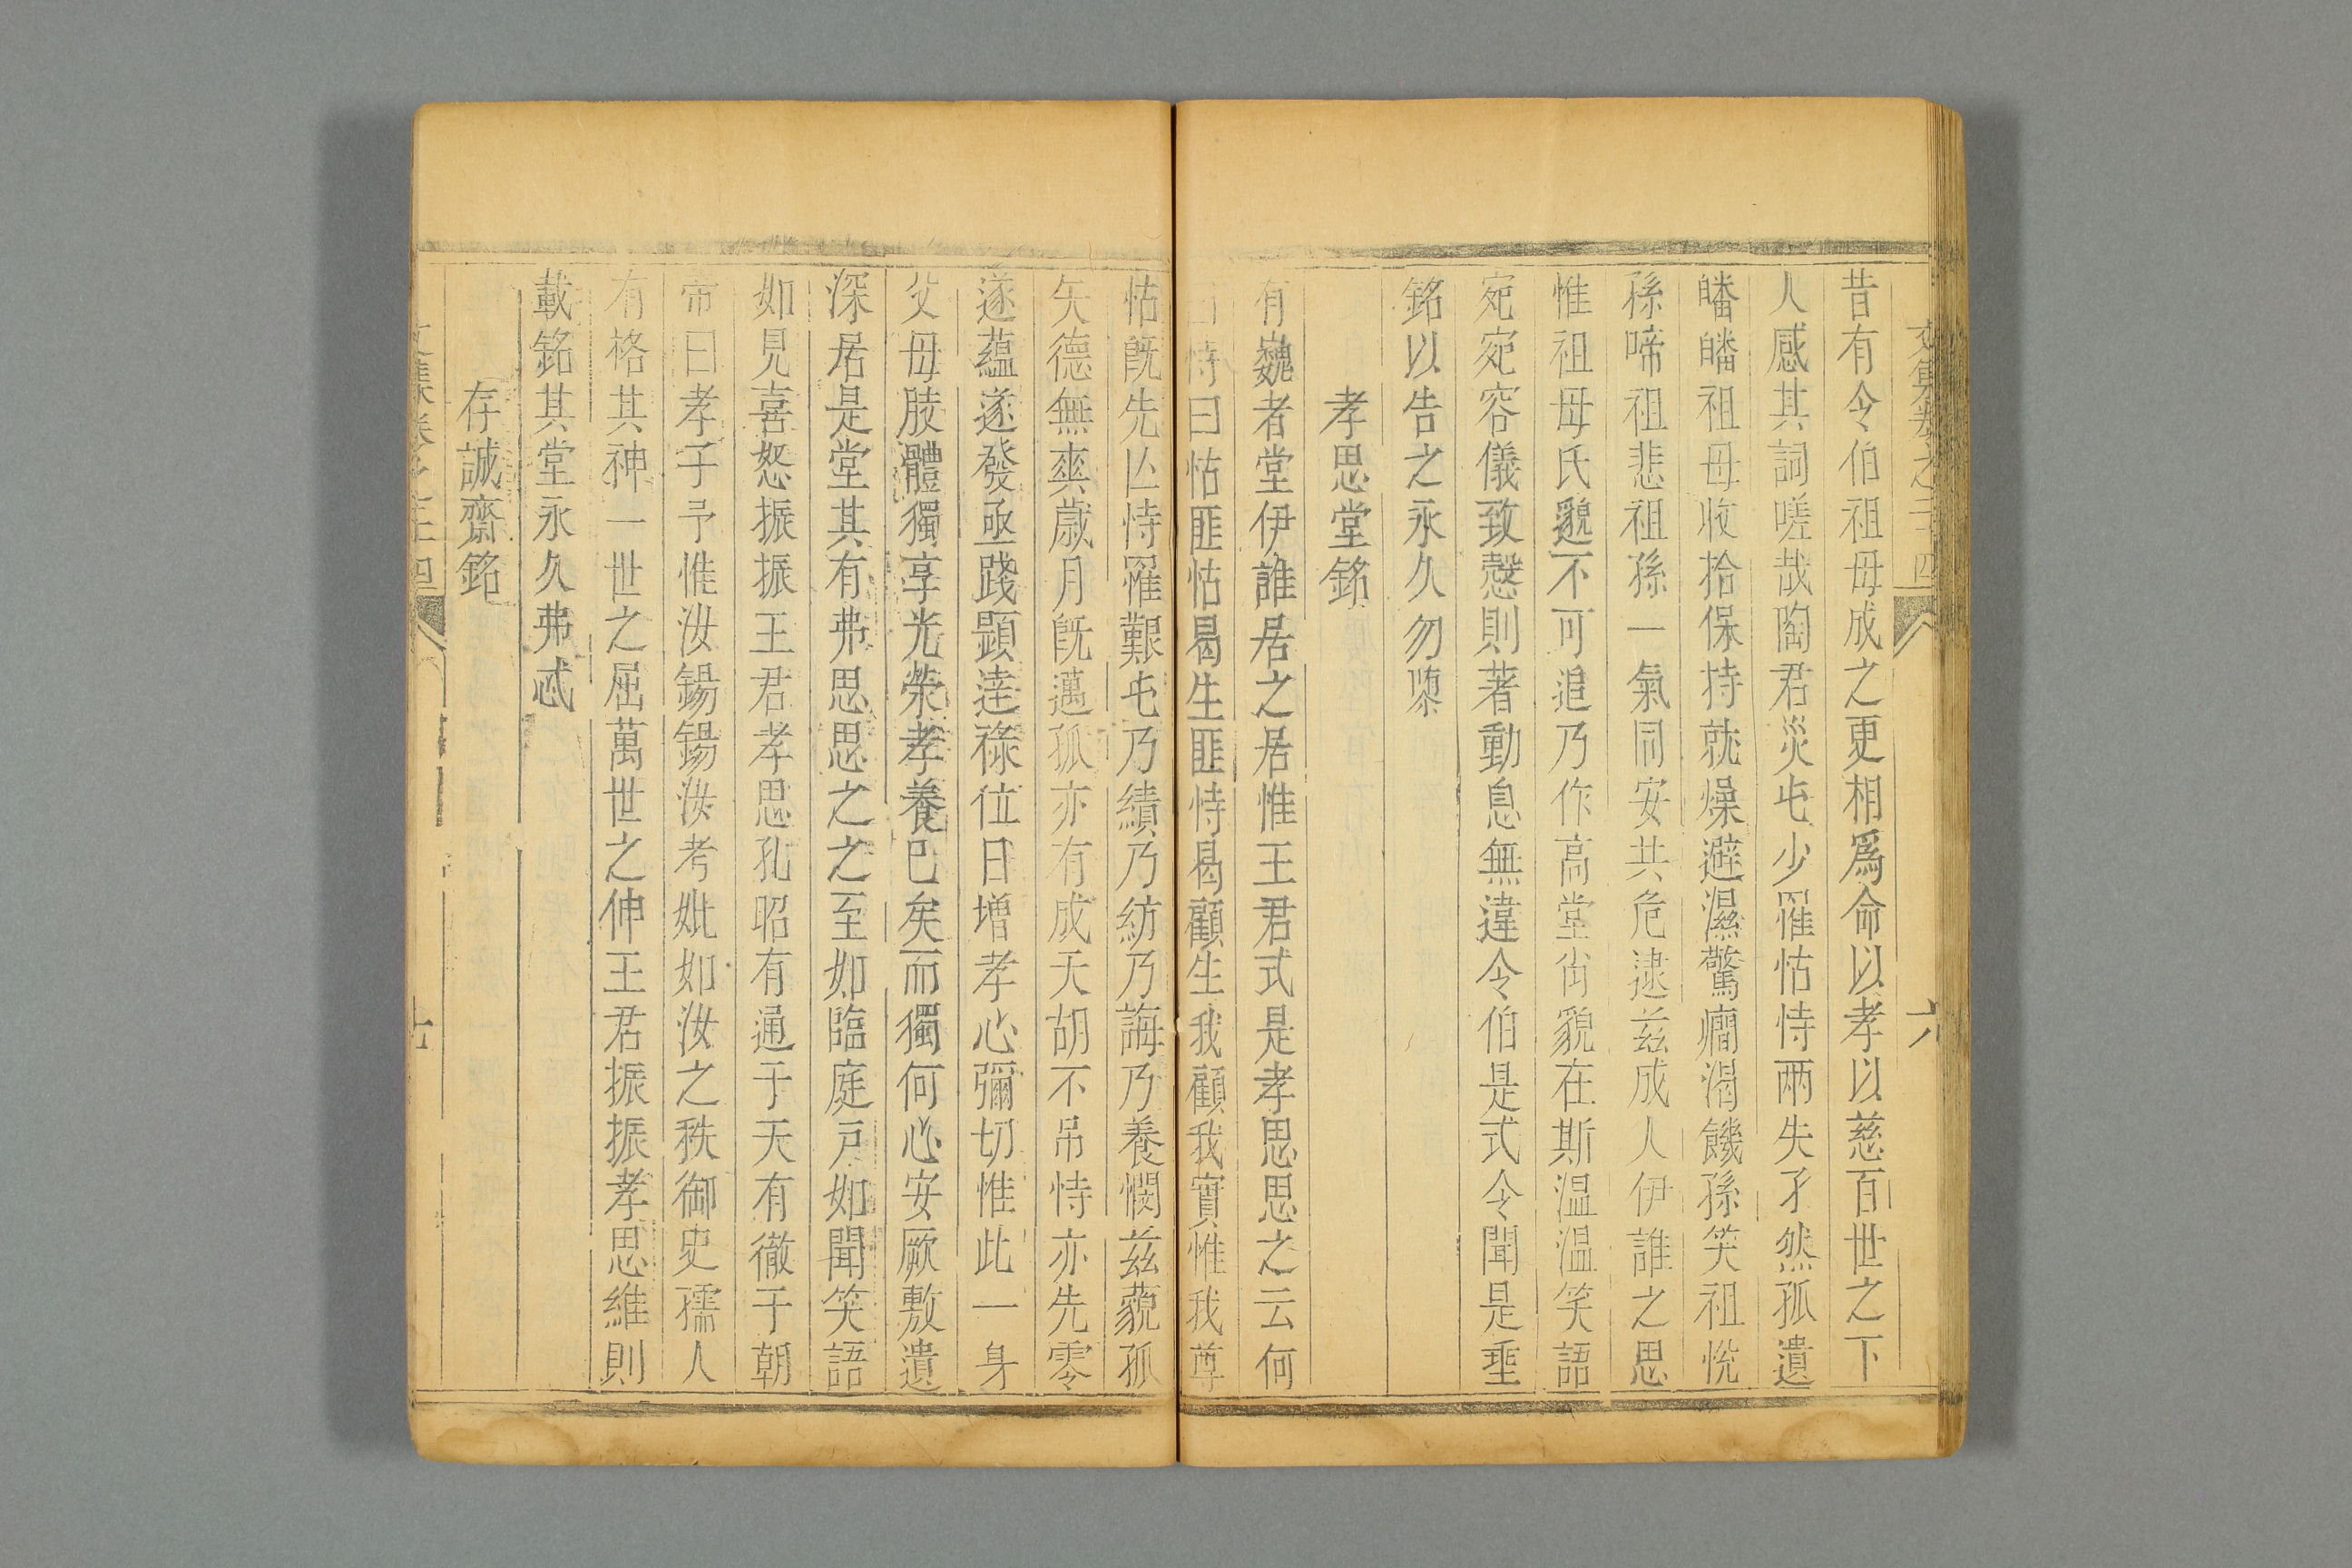 文集卷之二十四 六
昔有令伯祖母成之更相爲命以孝以慈百世之下
人感其詞嗟哉陶君災屯少罹怙恃兩失孑然孤遺
皤皤祖母收拾保持就燥避濕驚癇渴饑孫笑祖悅
孫啼祖悲祖孫一氣同安共危逮茲成人伊誰之思
惟祖母氏邈不可追乃作高堂尚貌在斯温温笑語
宛宛容儀致愨則著動息無違令伯是式令聞是垂
銘以告之永久勿隳
孝思堂銘
有巍者堂伊誰居之居惟王君式是孝思思之云何
曰恃曰怙匪怙曷生匪恃曷顧生我顧我實惟我尊
怙旣先亾恃罹艱屯乃績乃紡乃誨乃養憫茲藐孤
矢德無爽歲月旣邁孤亦有成天胡不吊恃亦先零
遂蘊遂發亟踐顯逹祿位日增孝心彌切惟此一身
父母肢體獨享光榮孝養巳矣而獨何心安厥敷遺
深居是堂其有弗思思之之至如臨庭戶如聞笑語
如見喜怒振振王君孝思孔昭有通于天有徹于朝
帝曰孝子予惟汝錫錫汝考妣如汝之秩御史孺人
有格其神一世之屈萬世之伸王君振振孝思維則
載銘其堂永久弗忒
存誠齋銘
文集卷之二十四 七